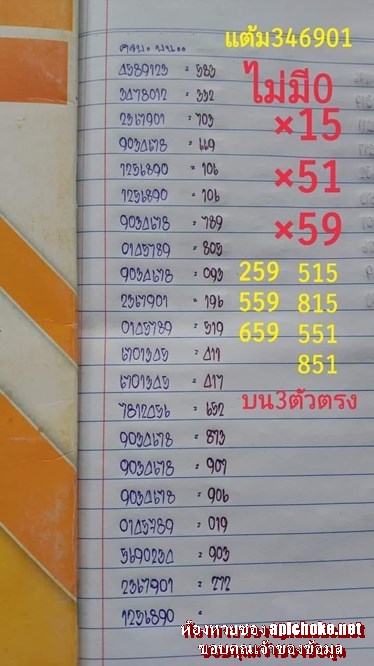 แต้ม346901
4589123 = 583
3478012 = 332
ไม่มี0
2367901 = 703
×15
9034678 = 669
1256890 = 106
×51
1256890 = 106
9034678 = 789
×59
0145789 = 805
9034678 = 093
259 515
2367901 = 196
559 815
0145789 = 519
659 551
6701345 = 411
851
6701345 = 417
7812456 = 652
บน3ตัวตรง
9034678 = 873
9034678 = 907
9034678 = 906
0145789 = 019
5690234 = 903
2367901 = 272
1256890 =
ห้องหวยซอง aplchoke.net
ขอบคุณเจ้าของข้อมูล